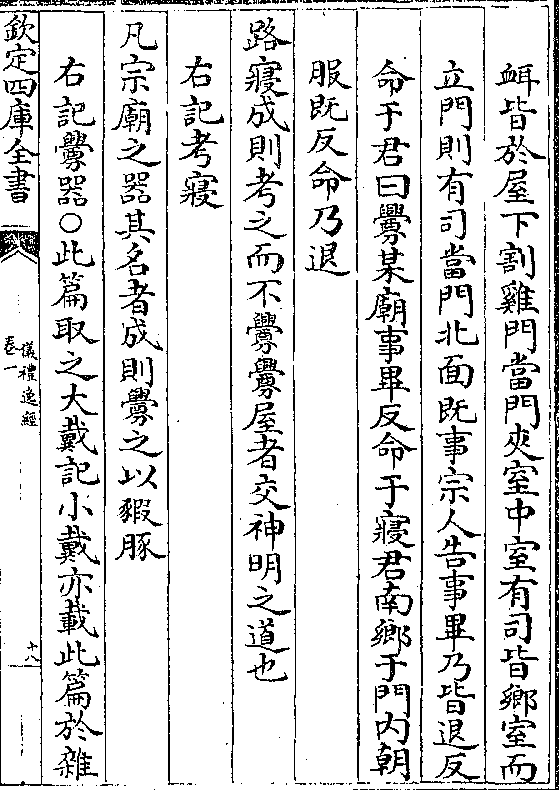 衈皆於屋下割雞門當門夾室中室有司皆鄉室而
立門則有司當門北面既事宗人告事畢乃皆退反
命于君曰釁某廟事畢反命于寢君南鄉于門内朝
服既反命乃退
路寢成則考之而不釁釁屋者交神明之道也
右記考寢
凡宗廟之器其名者成則釁之以豭豚
右記釁器○此篇取之大戴記小戴亦載此篇於雜
欽定四庫全書
儀禮逸經
卷一
十八